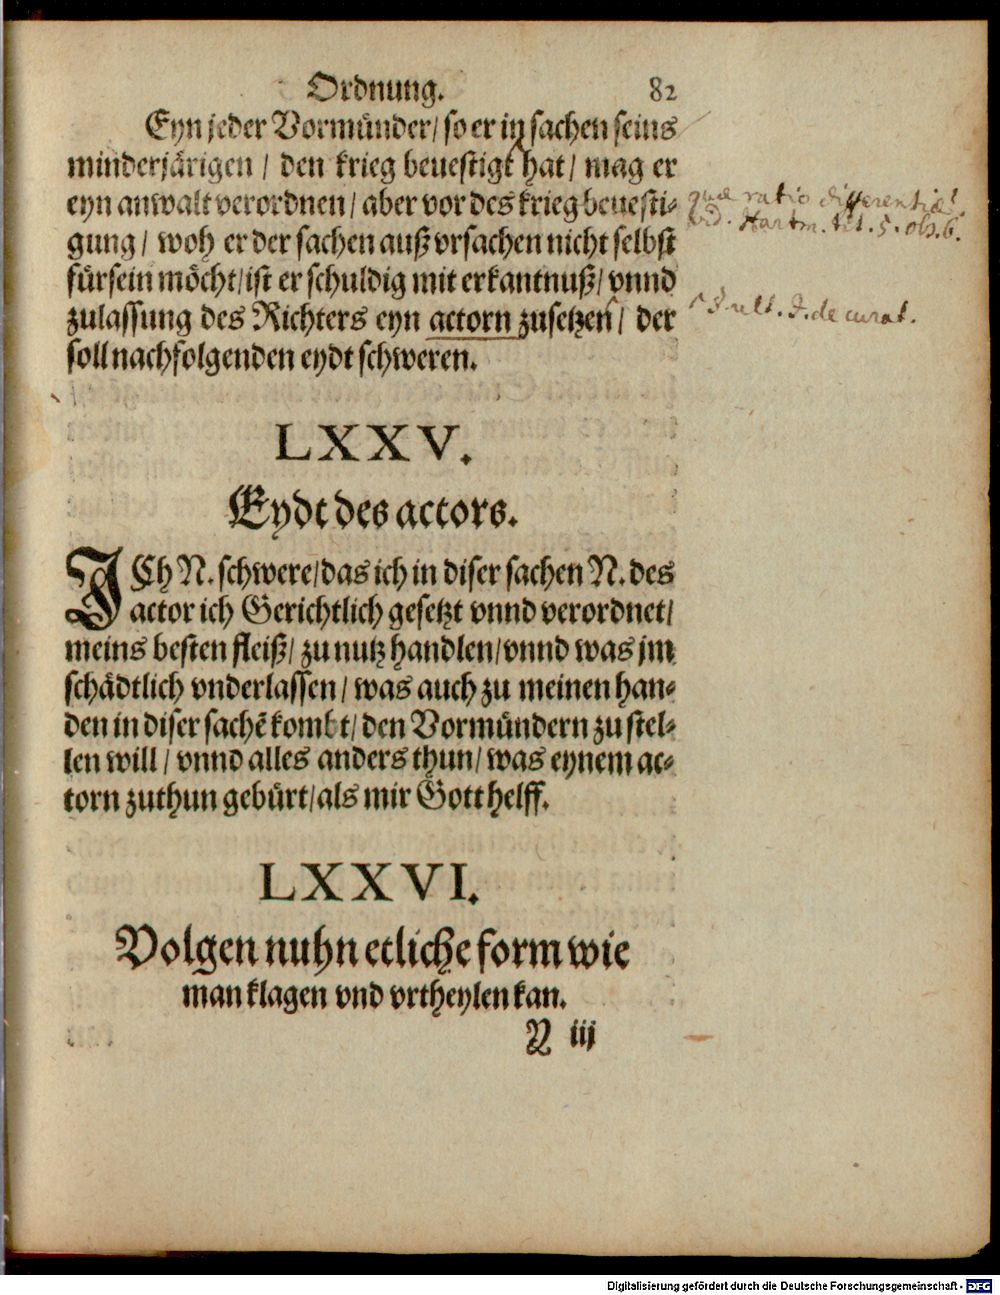 Ordnung. 82
Eyn jeder Vormünder/ so er in sachen seins
minderjärigen / den krieg beuestigt hat/ mag er
eyn anwalt verordnen/ aber vor des krieg beuesti-
gung/ woh er der sachen auß vrsachen nicht selbst
fürsein möcht/ist er schuldig mit erkantnuß/ vnnd
zulassung des Richters eyn actorn zusetzen/ der
soll nachfolgenden eydt schweren.
quae ratio differentiae?
vid. Hartm. tit. 5. obs. 6.
§ ult. I. de curat.
LXXV.
Eydt des actors.
ICh N. schwere/das ich in diser sachen N. des
actor ich Gerichtlich gesetzt vnnd verordnet/
meins besten fleiß/ zu nutz handlen/vnnd was jm
schädtlich vnderlassen/ was auch zu meinen han-
den in diser sachē kombt/ den Vormündern zu stel-
len will/ vnnd alles anders thun/ was eynem ac-
torn zuthun gebürt/als mir Gott helff.
LXXVI.
Volgen nuhn etliche form wie
man klagen vnd vrtheylen kan.
N iij
Digitalisierung gefördert durch die Deutsche Forschungsgemeinschaft - DFG